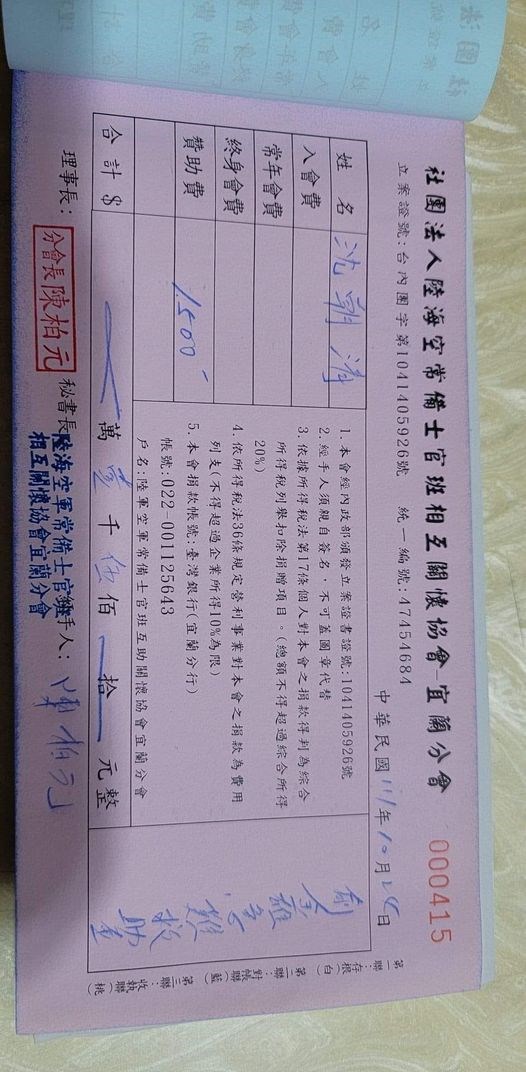 社團法人陸海空常備士官班相互關懷協會-宜蘭分會
000415
立案證號:台內團字第1041405926號 統一編號:47454684
中華民國111年10月 日
姓名
沈朝清
入會費
常年會費
終身會費
贊助費
1,500-
1. 本會經內政部頒發立案證書證號:1041405926號
2. 經手人須親自簽名,不可蓋圖章代替
3. 依據所得稅法第17條個人對本會之捐款得判為綜合
所得稅列舉扣除捐贈項目。(總額不得超過綜合所得
20%)
4. 依所得稅法36條規定營利事業對本會之捐款為費用
列支(不得超過企業所得10%為限)
5. 本會捐款帳號:臺灣銀行(宜蘭分行)
帳號:022-001125643
戶名:陸軍空軍常備士官班互助關懷協會宜蘭分會
合計$
萬壹千伍佰 拾 元整
急難救助金
理事長:
分會長陳柏元
秘書長
陸海空軍常備士官班
相互關懷協會宜蘭分會
經手人:
陳柏元
第一聯:存根(白)
第二聯:對帳聯(藍)
第三聯:收執聯(桃)